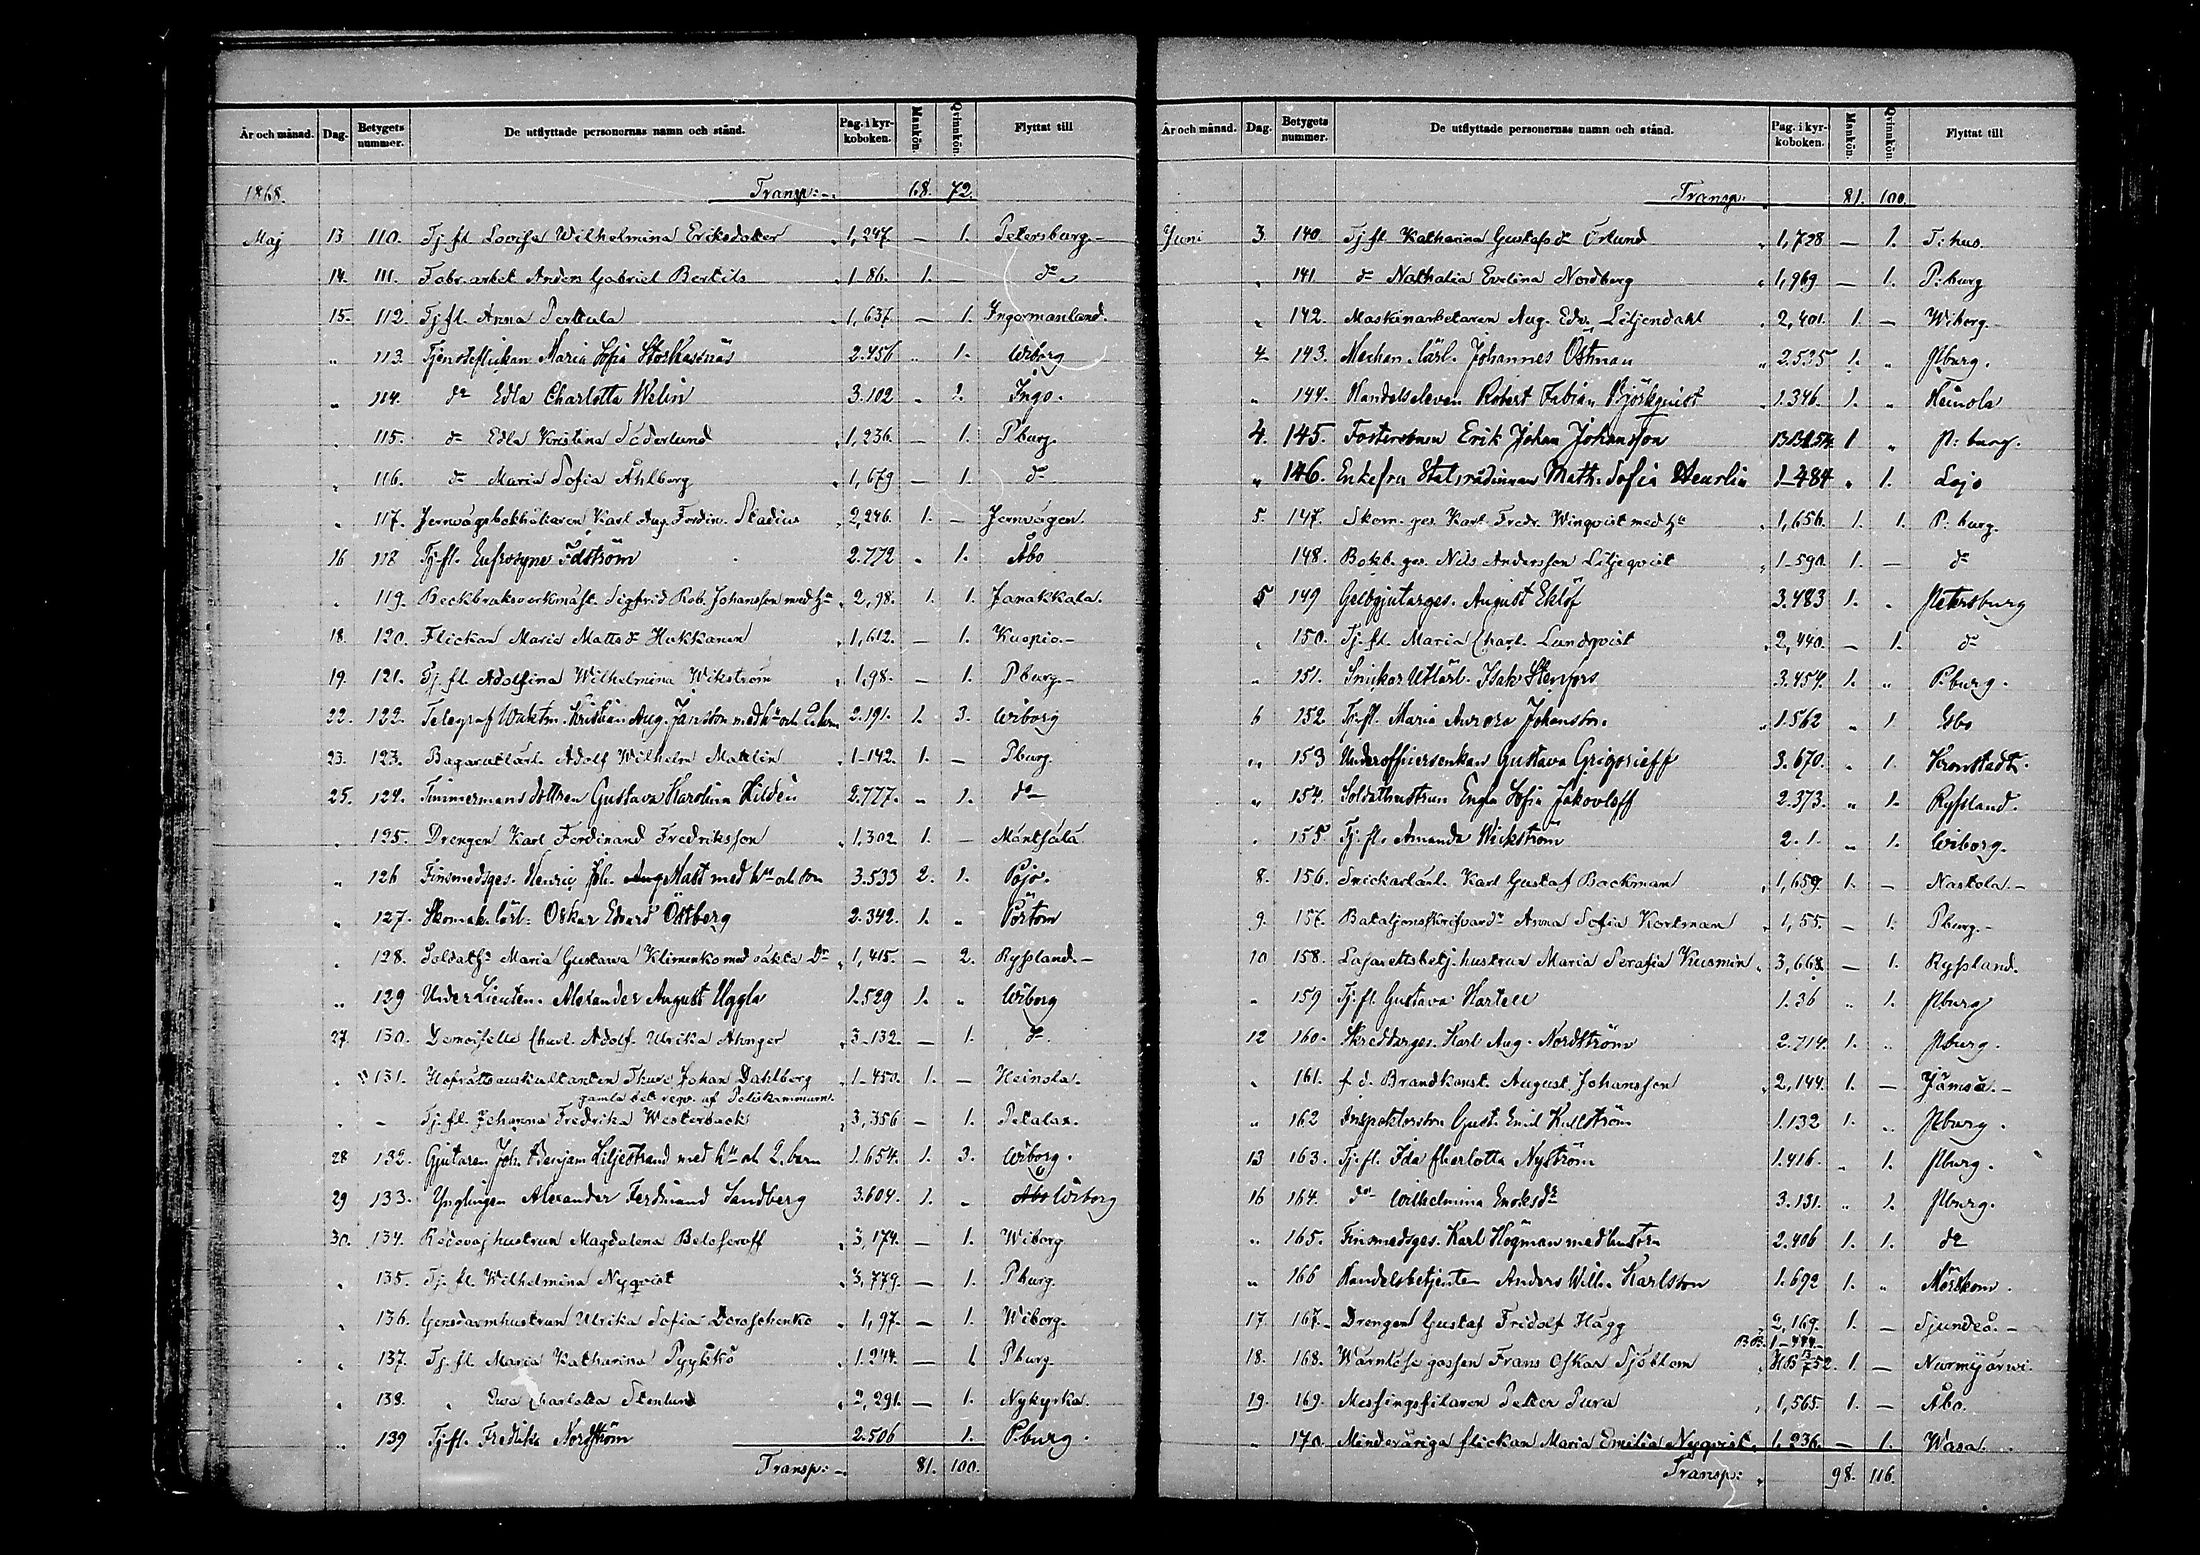 År och månad. Dag. Betygets nummer. De utflyttade personernas namn och stånd. Pag. i kyrkoboken. Mankön. Qvinnkön. Flyttat till
1868. Transp:- 68. 72.
Maj 13 110. Tj. fl. Lovisa Wilhelmina Eriksdotter 1,247. — 1. Petersburg.-
14. 111. Fabr. arbet Anders Gabriel Bertils 1-86. 1. — do
15. 112. Tj. fl. Anna Perttula 1,637. — 1. Ingermanland.
" 113. Tjensteflickan Maria Sofia 2.456 " 1. Wiborg
" 114. do Edla Charlotta Welin 3.102 " 1. Ingo.
" 115. do Edla Kristina Söderlund 1,236. — 1. Pburg.
" 116. do Maria Sofia Åhlberg 1,679 — 1. do
" 117. Jernvägsbokhållaren Karl Aug. Ferdin. Stadius 2,246. 1. — Jernvägen.
16 118 Tj. fl. Eufrosyne Edström 2.772 " 1. Åbo
" 119. Beckbruksverkmäst. Sigfrid Rob. Johansson med hu 2,98. 1. 1. Janakkala.
18. 120. Flickan Maria Mattsdr Hakkanen 1,612. — 1. Kuopio.-
19. 121. Tj. fl. Adolfina Wilhelmina Wikström 1,98. — 1. Pburg.-
22. 122. Telegraf Vaktm. Kristian Aug. Jansson med hu och 2. barn 2.191. 1. 3. Wiborg
23. 123. Bagarutlärl. Adolf Wilhelm Mattlin 1-142. 1. — Pburg.
25. 124. Timmermans dottren Gustava Karolina Hildén 2.777. " 1. do
" 125. Drengen Karl Ferdinand Fredriksson 1,302 1. — Mäntsälä.
" 126 Finsmedsges. Henric Joh. Aug Matt med hu och son 3.533 2. 1. Pojo.
" 127. Skomak. lärl. Oskar Edvard Östberg 2.342. 1. " Pörtom
" 128. Soldath. Maria Gustawa Klimenko med oäkta Dr 1,415. — 2. Ryssland.-
" 129 Under Lieuten. Alexander August Uggla 1.529 1. " Wiborg
27. 130. Demoiselle Charl. Adolf. Ulrika Ahnger 3-132. — 1. do
" 131. Hofrättsauskultanten Thure Johan Dahlberg 1-450. 1. — Heinola.
gamla bet. regr. af Poliskammarn.
" - Tj. fl. Johanna Fredrika Westerback 3,356 — 1. Petalax.
28 132. Gjutaren Joh. Benjam Liljestrand med hu och 2. barn 1.654. 1. 3. Wiborg.
29 133. Ynglingen Alexander Ferdinand Sandberg 3.604. 1. " Åbo Wiborg
30. 134. Redovajhustrun Magdalena Beloseroff 3,174. — 1. Wiborg
" 135. Tj. fl. Wilhelmina Nyqvist 3,779. — 1. Pburg.
" 136. Gensdarmhustrun Ulrika Sofia Doroschenko 1,97. — 1. Wiborg.
" 137. Tj. fl. Maria Katharina Pyykkö 1.244. — 1 Pburg.
" 138. " Eva Charlotta Stenlund 2,291. — 1. Nykyrka.
" 139 Tj. fl. Fredrika Nordström 2.506 1. P.burg.
Transp:- 81. 100.
År och månad. Dag. Betygets nummer. De utflyttade personernas namn och stånd. Pag. i kyrkoboken. Mankön. Qvinnkön. Flyttat till
Transp: 81. 100.
Juni 3. 140 Tj. fl. Katharina Gustafsdr Östlund 1,728 — 1. T:hus.
" 141 do Nathalia Evelina Nordberg 1,969 — 1. P:burg
" 142. Maskinarbetaren Aug. Edv. Liljendahl 2,401. 1. — Wiborg.
4 143. Mechan. lärl. Johannes Östman 2.535 1. " Pburg.
" 144. Handelseleven Robert Fabian Björkqvist 1.346. 1. " Heinola
4. 145. Fostersonen Erik Johan Johansson 1 " P:burg.
" 146. Enkefru Statsrådinnan Math. Sofia Heurlin 1-484 " 1. Lojo
5. 147. Skom. ges. Karl Fredr. Winqvist med hu 1,656. 1. 1. P:burg.
148. Bokb. ges. Nils Andersson Liljeqvist 1-590. 1. — do
5 149 Gelbgjutarges. August Eklöf 3.483 1. " Petersburg
" 150. Tj. fl. Maria Charl. Lundqvist 2,440. — 1. do
" 151. Snickar Utlärl. Isak Stenfors 3.454. 1. " P.burg.
6 152. Tj. fl. Maria Aurora Johansson. 1.562 " 1. Esbo
" 153 Underofficersenkan Gustava Grigorieff 3.670. " 1. Kronstadt.
" 154. Soldathustrun Engla Sofia Jakovleff 2.373. " 1. Ryssland.
" 155 Tj. fl. Amanda Wickström 2.1. " 1. Wiborg.
8. 156. Snickarlärl. Karl Gustaf Backman 1,659. 1. — Nastola.-
9. 157. Bataljonsskrifvaredr Anna Sofia Kortman 1,55. — 1. Pburg.-
10 158. Lazarettsbetj. hustrun Maria Serafia Kusmin 3,668. — 1. Ryssland.
" 159 Tj. fl. Gustava Hartell 1.36 " 1. Pburg
12 160. Skreddarges. Karl Aug. Nordström 2.714. 1. " Pburg.
" 161. f. d. Brandkonst. August Johansson 2,144. 1. — Jämsä.-
" 162 Inspektorson Gust. Emil Kullström 1.132 1. " Pburg.
13 163. Tj. fl. Ida Charlotta Nyström 1.416. " 1. Pburg.
16 164. do Wilhelmina Enoksdr 3.131. " 1. Pburg.
" 165. Finsmedsges. Karl Högman med hustru 2.406 1. 1. do
" 166 Handelsbetjenten Anders Wilh. Karlsson 1.692 1. " Mörskom.
17. 167. Drengen Gustaf Fridolf Hägg 2,169. 1. — Sjundeå.-
18. 168. Wärnlöse gossen Frans Oskar Sjöblom 1. — Nurmijärvi.
19. 169. Messingsfilaren Petter Pura 1,565. 1. — Åbo.
" 170. Minderåriga flickan Maria Emilia Nyqvist. 1.236. — 1. Wasa.
Transp: 98. 116.